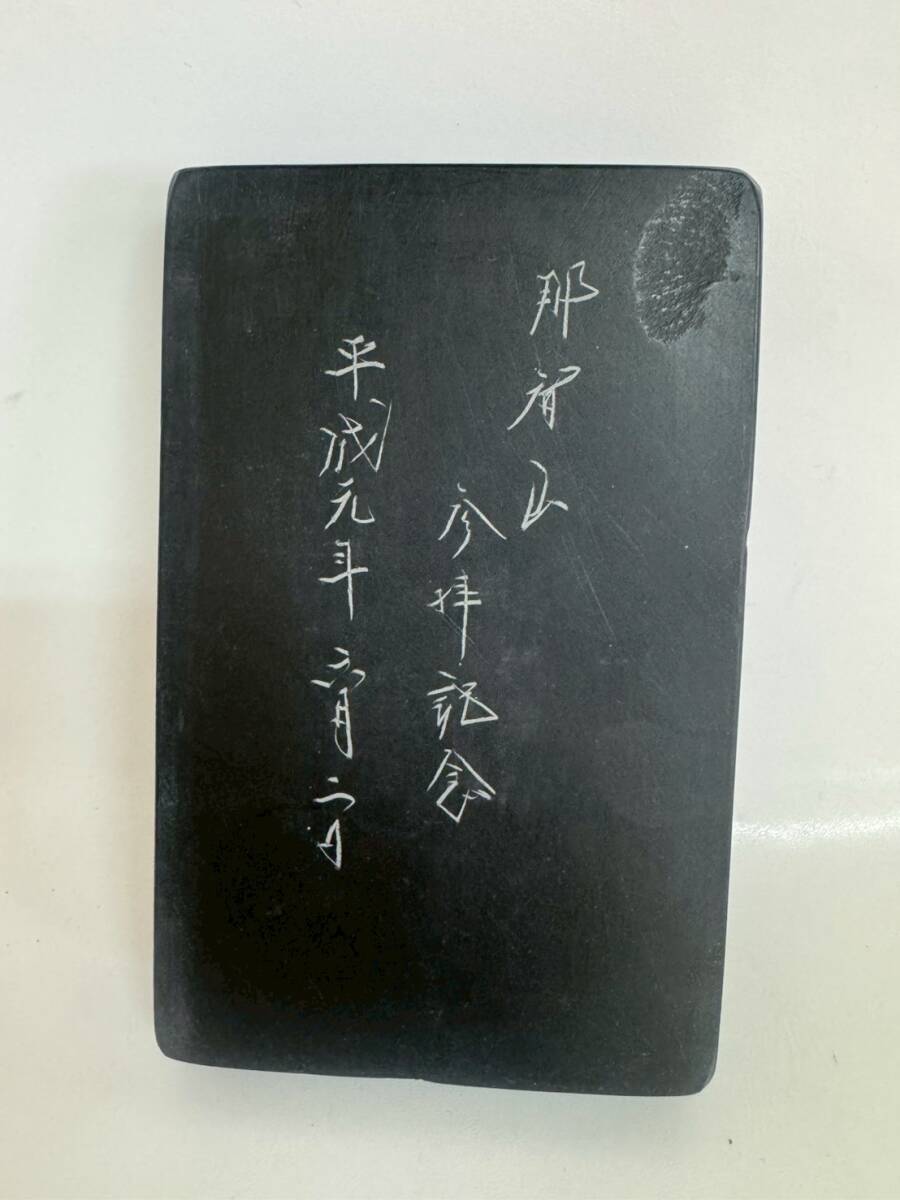 那智山
参拝記念
平成元年六月二日